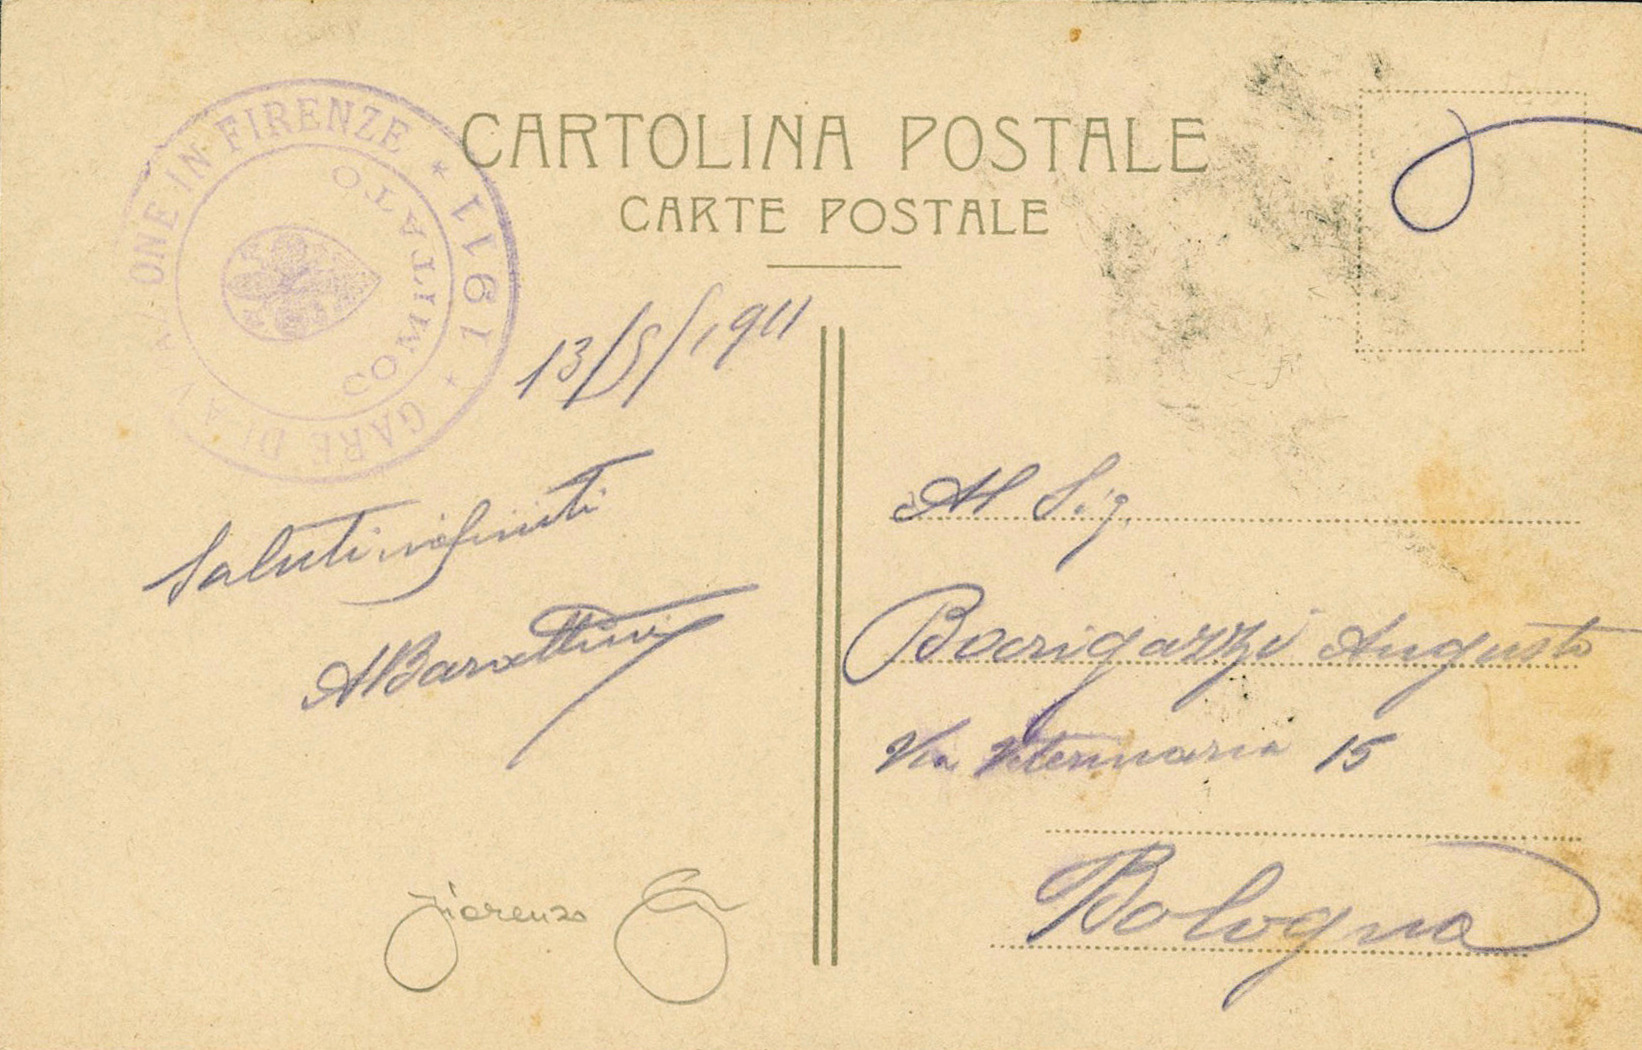 CARTOLINA POSTALE
CARTE POSTALE
GARE DI AVIAZIONE IN FIRENZE * 1911 *
COMITATO
13/5/1911
Saluti infiniti
ABarattini
Al Sig.
Bocrigazzi Augusto
Via Veterinaria 15
Bologna
Fiorenzo